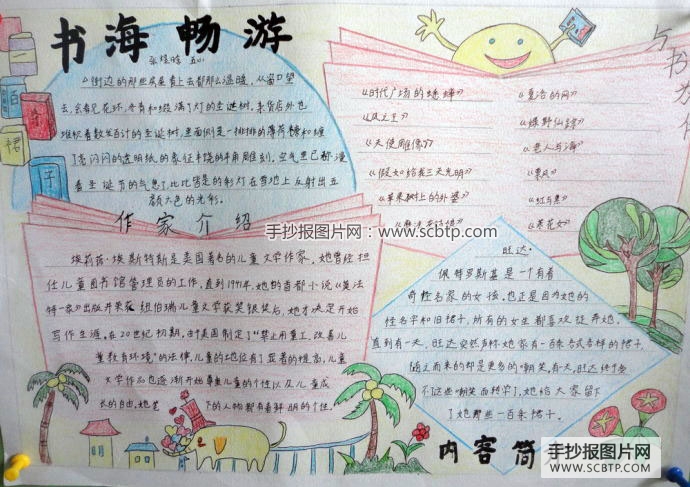 书海畅游
五(1)
街边的那些房屋看上去都那么温暖,从窗口望
去,会看见花环、冬青和缀满了灯的圣诞树,杂货店外也
堆积着数以百计的圣诞树,里面则是一排排的薄荷糖和缠
了亮闪闪的透明纸的象征丰饶的羊角雕刻。空气里已都漫
着圣诞节的气息了,比比皆是的彩灯在雪地上反射出五
颜六色的光彩。
与书为伴
《时代广场的蟋蟀》
《风之王》
《天使雕像》
《假如给我三天光明》
《苹果树上的外婆》
《夏洛的网》
《绿野仙踪》
《老人与海》
《飘》
《红与黑》
《茶花女》
作家介绍
手抄报图片网:www.scbtp.com
埃莉诺·埃斯特斯是美国著名的儿童文学作家,她曾经担
任儿童图书馆管理员的工作,直到1941年,她的首部小说《莫法
特一家》出版并荣获纽伯瑞儿童文学获奖银奖后,她才决定开始
写作生涯。在20世纪初期,由于美国制定了“禁止用童工,改善儿
童教育环境”的法律,儿童的地位有了显著的提高,儿童
文学作品也逐渐开始尊重儿童的个性以及儿童成
长的自由。她笔下的人物都有着鲜明的个性。
旺达·
佩特罗斯基是一个有着
奇怪名字的女孩,也正是因为她的
怪名字和旧裙子,所有的女生都喜欢捉弄她,
直到有一天,旺达突然声称她家有一百条各式各样的裙子,
随之而来的却是更多的嘲笑,有一天,旺达终于
不这些嘲笑而转学了,她给大家留下
了她那些一百条裙子。
内容简
手抄报图片网
WWW.SCBTP.COM